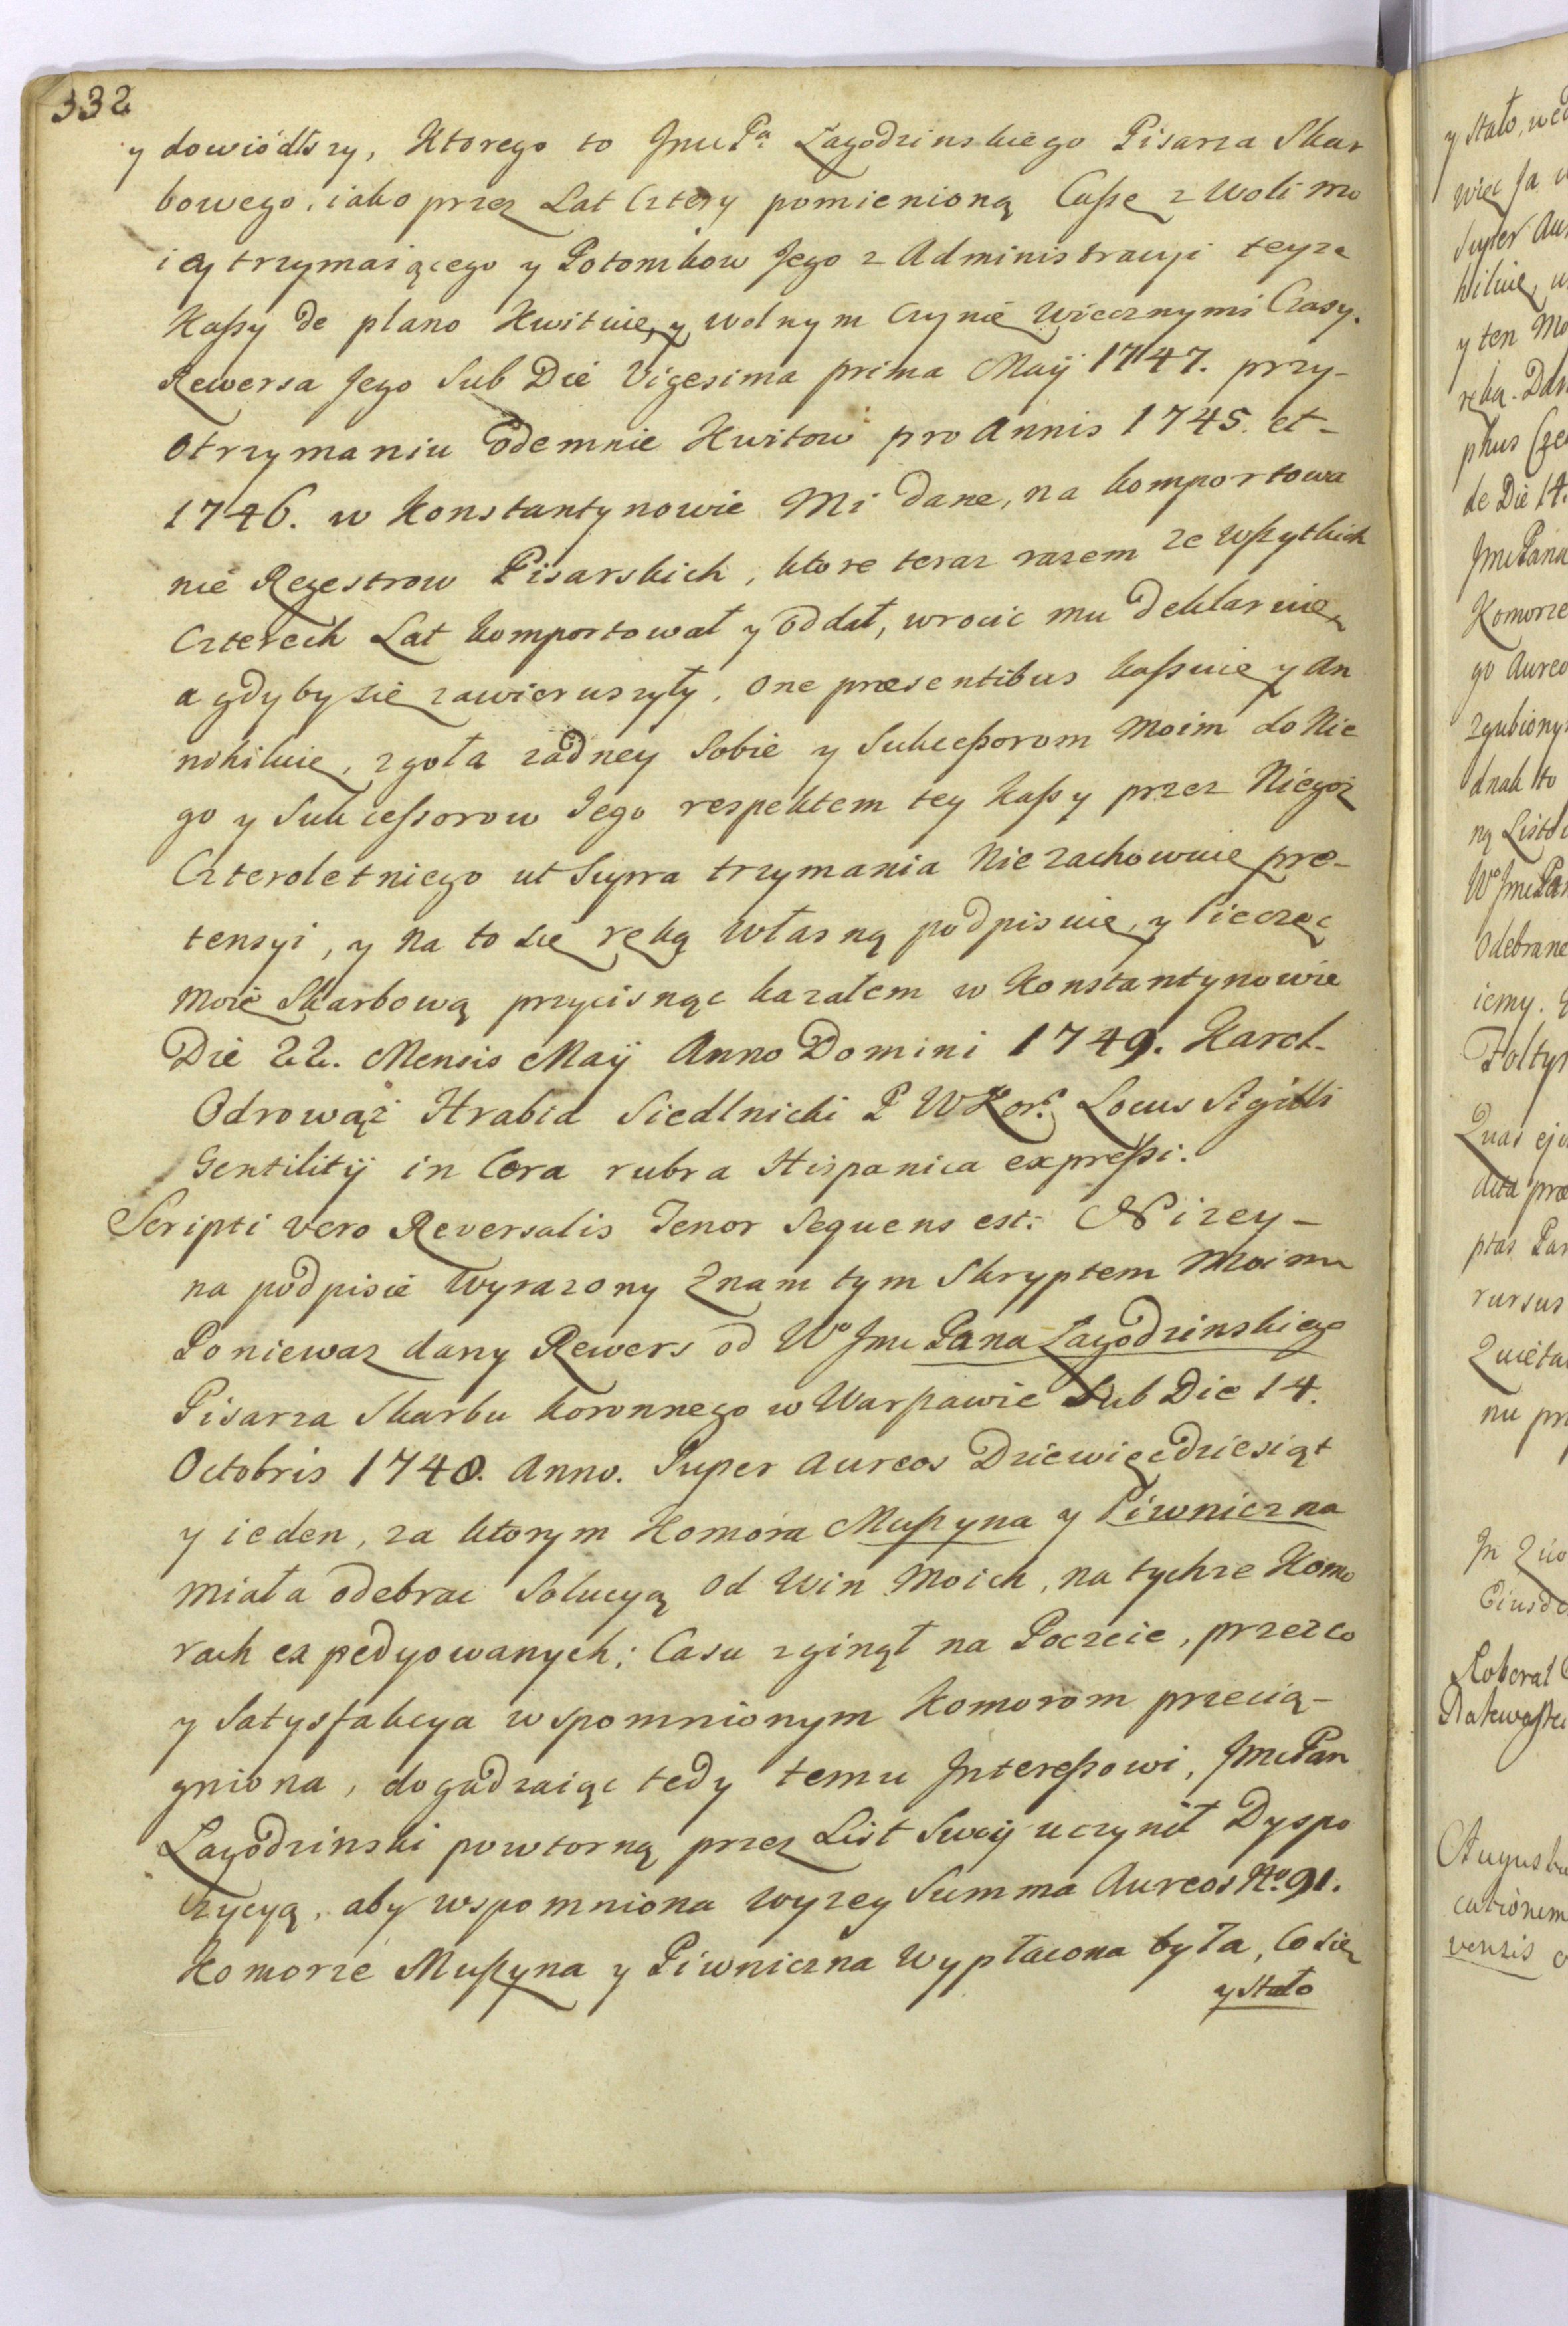 332
y dowiódłszy, Ktorego to JmcPa Łagodzinskiego Pisarza Skar
bowego, iako przez Lat Cztery pomienioną Cassę z Woli mo
iey trzymaiącego y Potomkow Jego z Administracyi teyze
Kassy de plano Kwituię, y wolnym Czynię Wiecznymi Czasy.
Rewersa Jego Sub Die Vigesima prima Maij 1747. przy-
otrzymaniu odemnie Kwitow pro Annis 1745. et-
1746. w Konstantynowie Mi dane, na komportowa
nie Regestrow Pisarskich, ktore teraz razem ze wszytkich
Czterech Lat komportował y oddał, wrocic mu deklaruię,
a gdyby się zawieruszyły, one præsentibus kassuię y An
nihiluię, zgoła zadney Sobie y Sukcessorom Moim do Nie
go y Sukcessorow Jego respektem tey kassy przez Niegoz
Czteroletniego ut Supra trzymania Nie zachowuię præ-
tensyi, y na to się ręką własną podpisuię, y Pieczęc
moię Skarbową przycisnąc kazałem w Konstantynowie
Die 22. Mensis Maij Anno Domini 1749. Karol-
Odrowąż Hrabia Siedlnicki P W Kor: Locus Sigilli
Gentilitij in Cera rubra Hispanica expressi.
Scripti vero Reversalis Tenor Sequens est: Nizey-
na podpisie Wyrazony Znam tym Skryptem Moim
Poniewaz dany Rewers od Wo Jmc Pana Łagodzinskiego
Pisarza Skarbu koronnego w Warszawie Sub Die 14.
Octobris 1748. Anno. Super Aureos Dziewięcdziesiąt
y ieden, za ktorym Komora Muszyna y Piwniczna
miała odebrac Solucyą od Win Moich, na tychze Komo
rach expedyowanych; Casu zginął na Poczcie, przezco
y Satysfakcya wspomnionym Komorom przecią-
gniona, dogadzaiąc tedy temu Interessowi, JmcPan
Łagodzinski powtorną przez List Swoij uczynił Dyspo
zycyą, aby wspomniona wyzey Summa Aureos No 91.
Komorze Muszyna y Piwniczna Wypłacona była, Co się
y Stało